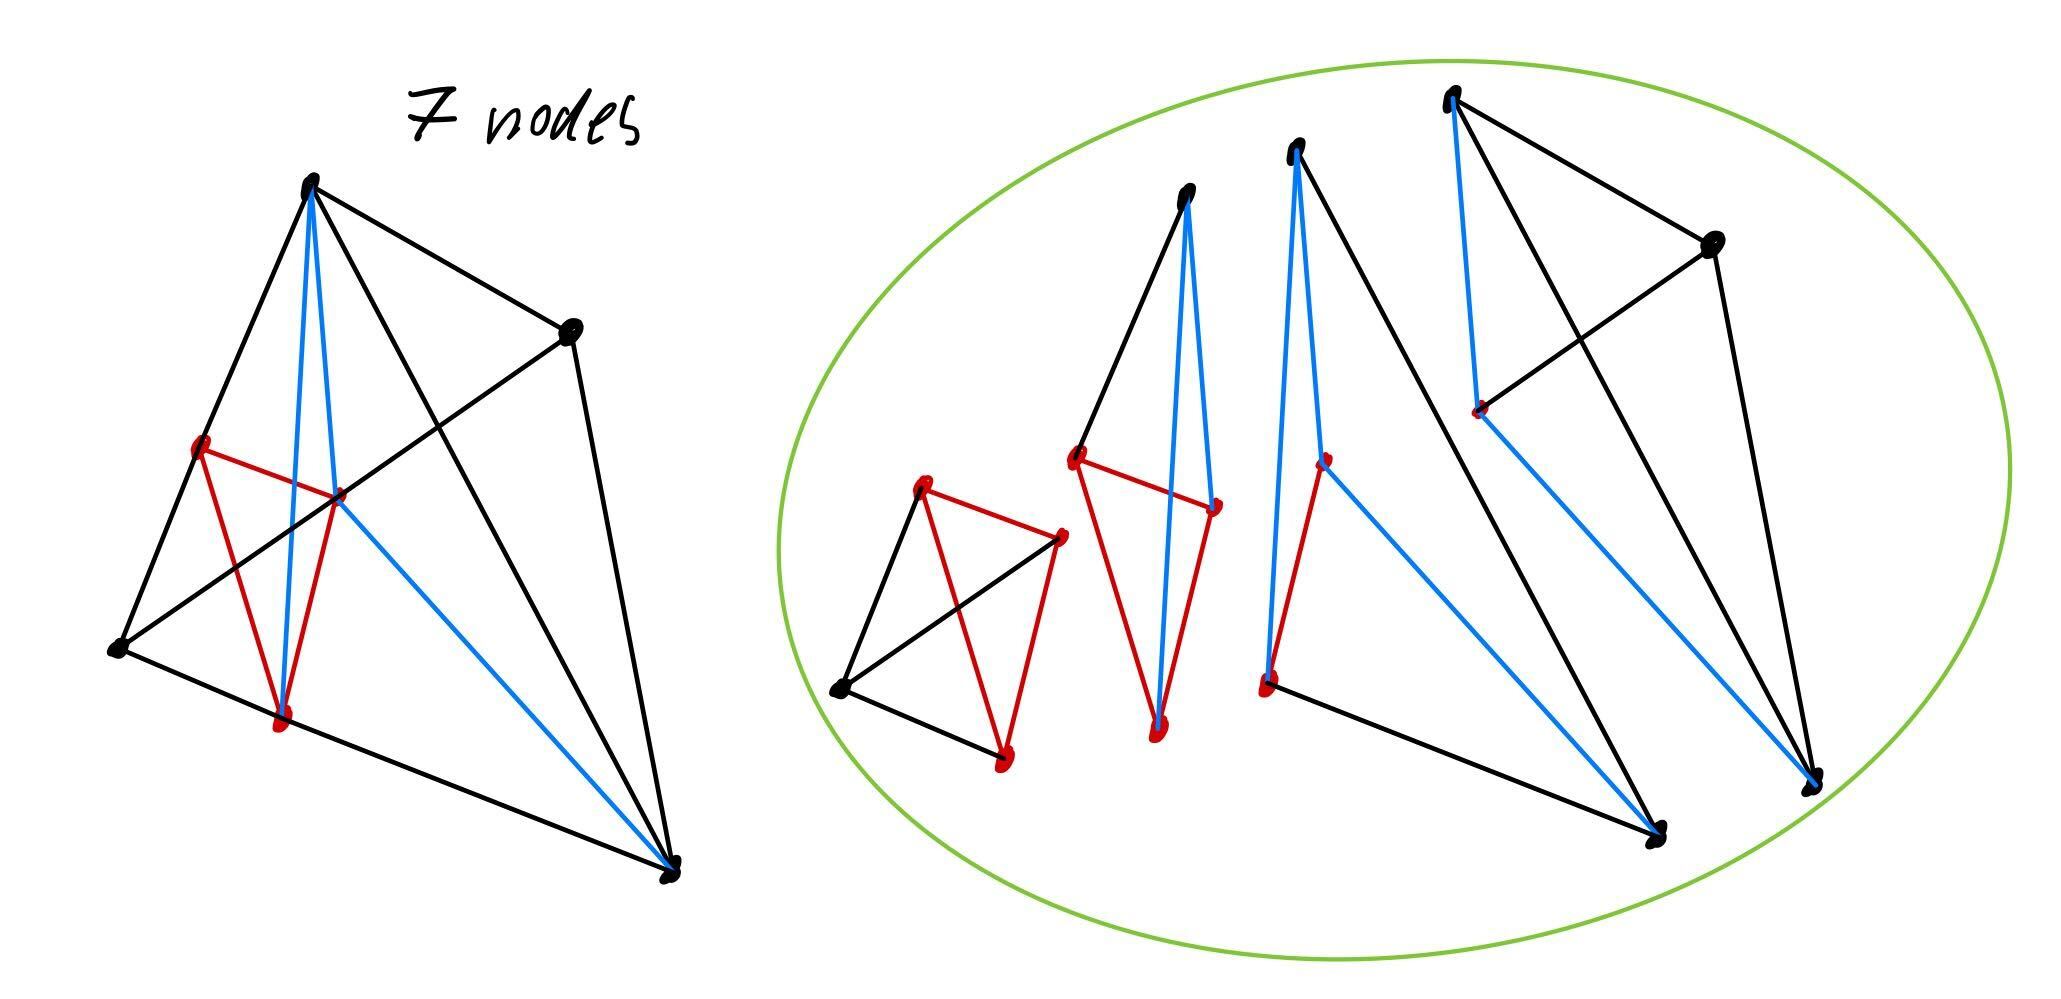 7 nodes